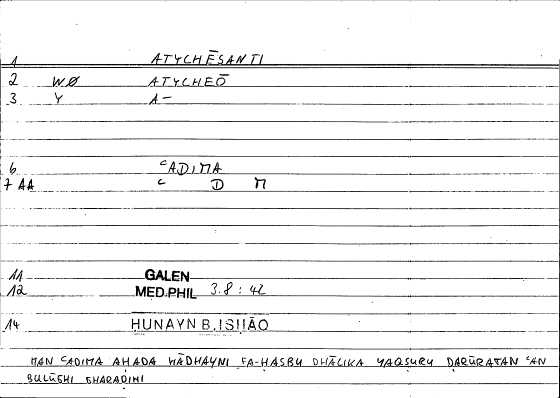 1 ATYCHĒSANTI
2 WØ ATYCHEŌ
3 Y A–
6 ᶜADIMA
7 AA ᶜ D M
11 GALEN
12 MED.PHIL 3.8 : 42
14 ḤUNAYN B. ISḤĀQ
MAN ᶜADIMA AḤADA HĀDHAYNI FA-ḤASBU DHĀLIKA YAQṢURU ḌARŪRATAN ᶜAN
BULŪGHI GHARAḌIHI